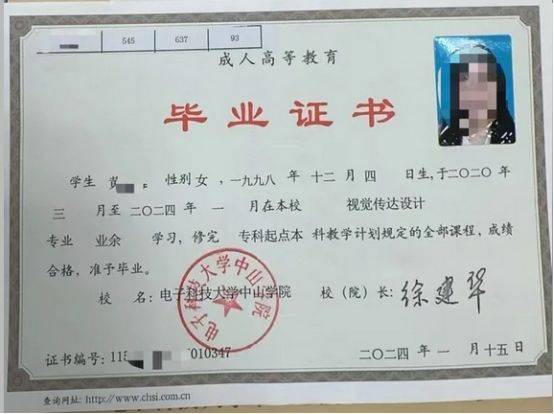 545 637 93
成人高等教育
毕业证书
学生 性别女，一九九八年十二月四日生，于二〇二〇年
三月至二〇二四年一月在本校 视觉传达设计
专业 业余 学习，修完 专科起点本科教学计划规定的全部课程，成绩
合格，准予毕业。
校 名：电子科技大学中山学院 校（院）长：徐建华
电子科技大学中山学院
证书编号：115 010347 二〇二四年一月十五日
查询网址：http://www.chsi.com.cn